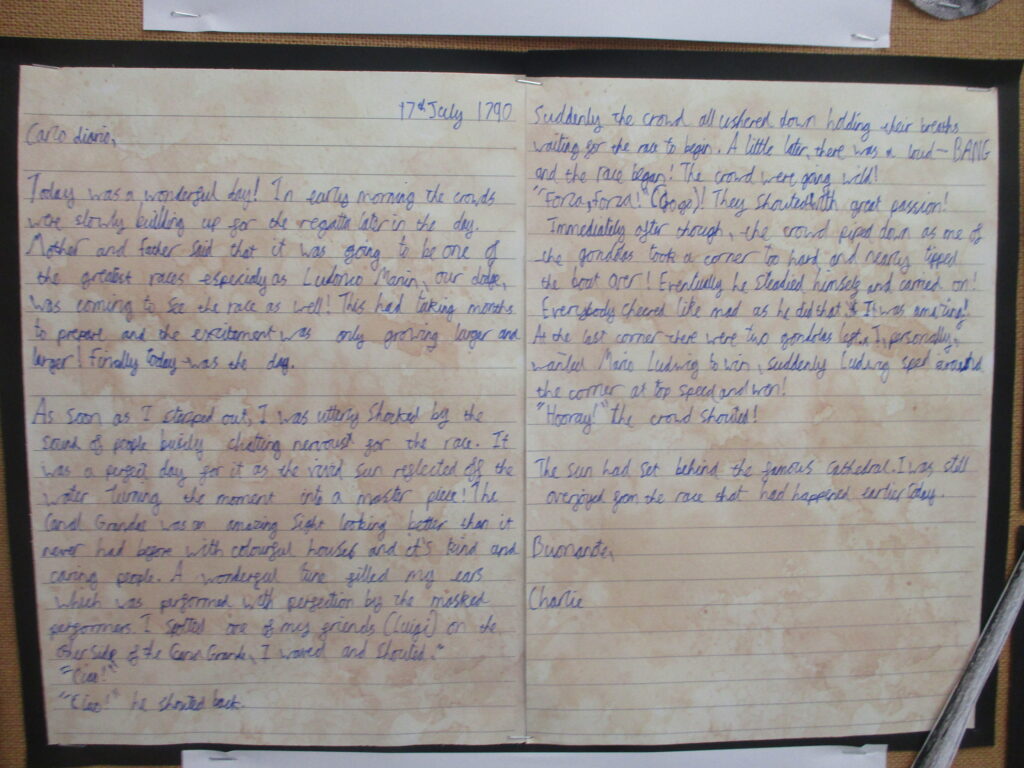 17th July 1790
Caro diario,
Today was a wonderful day! In early morning the crowds
were slowly building up for the regatta later in the day.
Mother and Father said that it was going to be one of
the greatest races especialy as Ludovico Manin, our dodge,
was coming to see the race as well! This had taking months
to prepare and the excitement was only growing larger and
larger! Finally today was the day.
As soon as I stepped out, I was utterly shocked by the
sound of people busily chatting for the race. It
was a perfect day for it as the vivid sun reflected off the
water. Turning the moment into a master piece! The
Canal Grande was an amazing sight looking better than it
never had before with colourful houses and it's kind and
caring people. A wonderful tune filled my ears
which was performed with perfection by the masked
performers. I spotted one of my friends (Luigi) on the
other side of the Grande, I waved and shouted."
"Ciao!"
"Ciao!" he shouted back.
Suddenly the crowd all ushered down holding their breaths
waiting for the race to begin. A little later, there was a loud - BANG
and the race began! The crowd were going wild!
"Forza, Forza! (Go go)! They shouted with great passion!
Immediately after though, the crowd piped down as one of
the gondlas took a corner too hard and nearly tipped
the boat over! Eventually he steadied himself and carried on!
Everybody cheered like mad as he did that. It was amazing!
At the last corner there were two gondolas left. I, personally,
wanted Mario Ludwig to win, suddenly Ludwig sped around
the corner at top speed and won!
"Hooray!" the crowd shouted!
The sun had set behind the famous cathedral. I was still
overjoyed from the race that had happened earlier today.
Buonanote,
Charlie